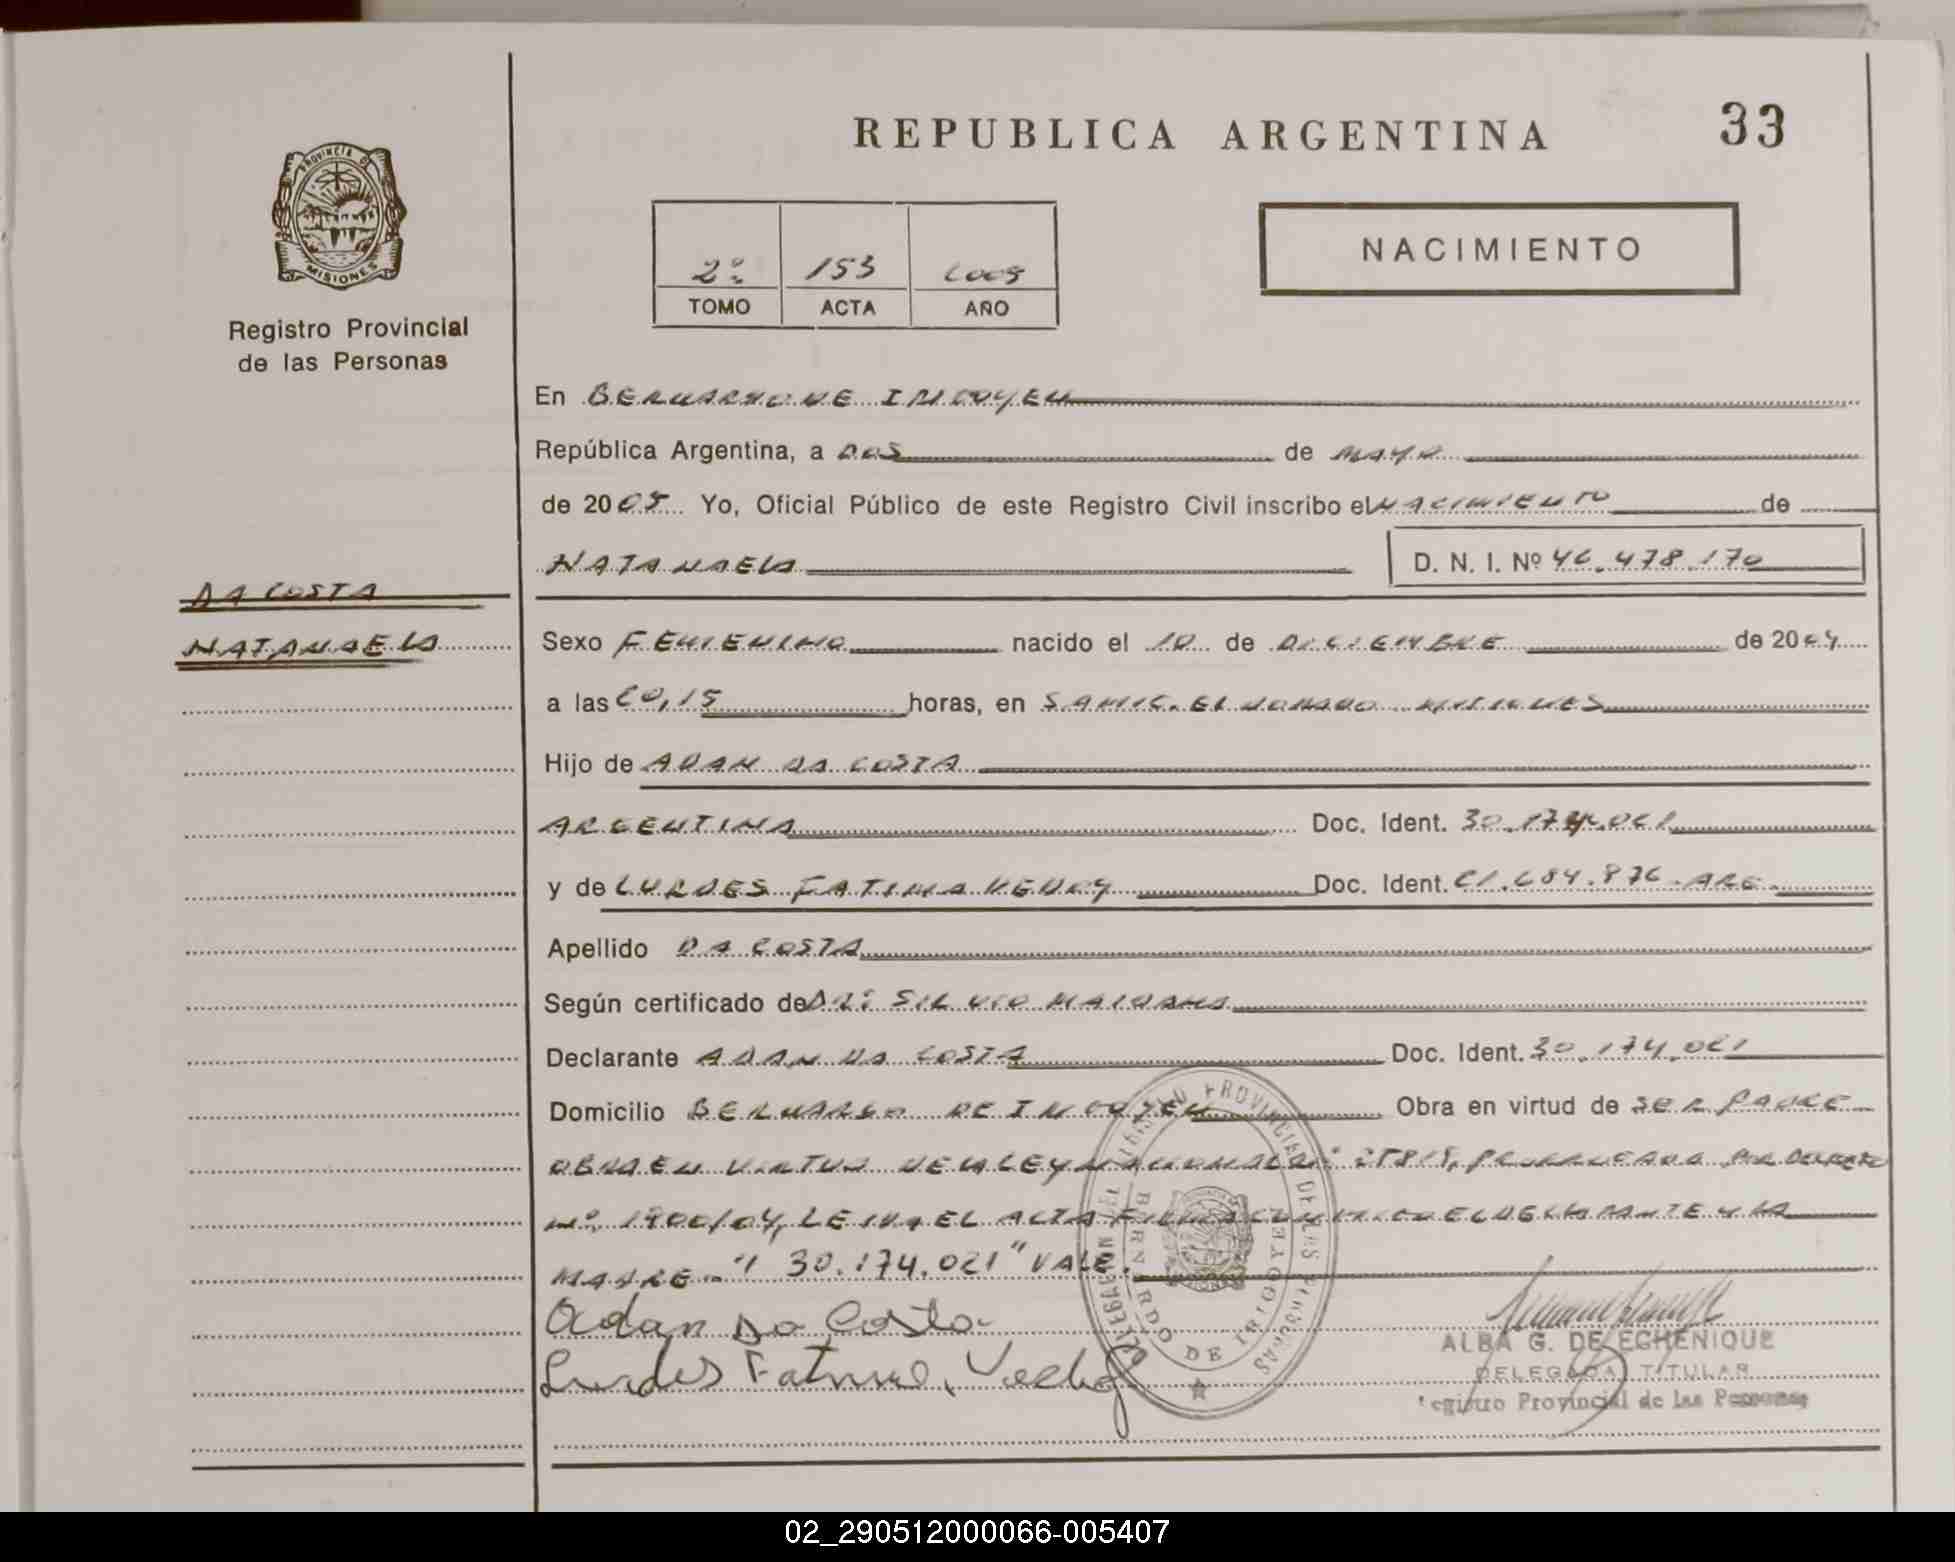 REPUBLICA ARGENTINA
33
PROVINCIA DE
MISIONES
Registro Provincial
de las Personas
2º 153 2005
TOMO ACTA AÑO
NACIMIENTO
En BERNARDO DE IRIGOYEN
República Argentina, a DOS de MAYO
de 2005 Yo, Oficial Público de este Registro Civil inscribo el NACIMIENTO de
NATANAELA D. N. I. Nº 46.478.170
DA COSTA
NATANAELA
Sexo FEMENINO nacido el 10 de DICIEMBRE de 2004
a las 20,15 horas, en SAMIC. ELDORADO MISIONES
Hijo de ADAN DA COSTA
ARGENTINA Doc. Ident. 30.174.021
y de LURDES FATIMA Doc. Ident. 21.684.876 - ARG
Apellido DA COSTA
Según certificado de DR: SILVIO MAIDANA
Declarante ADAN DA COSTA Doc. Ident. 30.174.021
Domicilio BERNARDO DE IRIGOYEN Obra en virtud de SER PADRE
OBRA EN VIRTUD DE LA LEY NACIONAL Nº: 25819, PRORROGADA POR DECRETO
Nº. 1900/04, LEIDA EL ACTA FIRMA CONMIGO EL DECLARANTE Y LA
MADRE - "30.174.021" VALE.
Adan Da Costa
Lurdes Fatima
REGISTRO PROVINCIAL DE LAS PERSONAS
BERNARDO DE IRIGOYEN
ALBA G. DE ECHENIQUE
DELEGADA TITULAR
Registro Provincial de las Personas
02_290512000066-005407